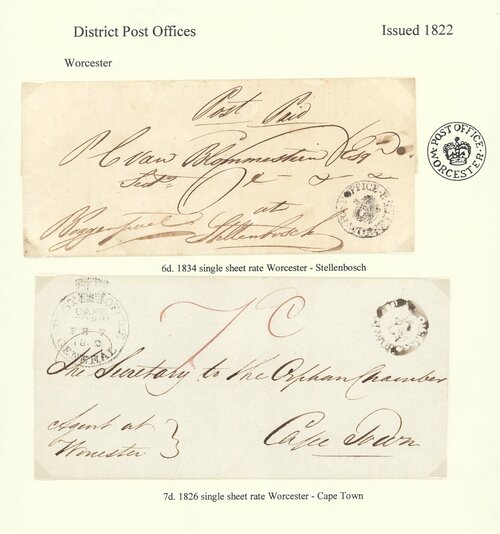 District Post Offices
Issued 1822
Worcester
Post Paid
P C van Blommestein Esqr
&c & &
at
Stellenbosch
POST OFFICE
WORCESTER
6d. 1834 single sheet rate Worcester - Stellenbosch
7
GENERAL
The Secretary to the Orphan Chamber
Agent at
Worcester
Cape Town
7d. 1826 single sheet rate Worcester - Cape Town